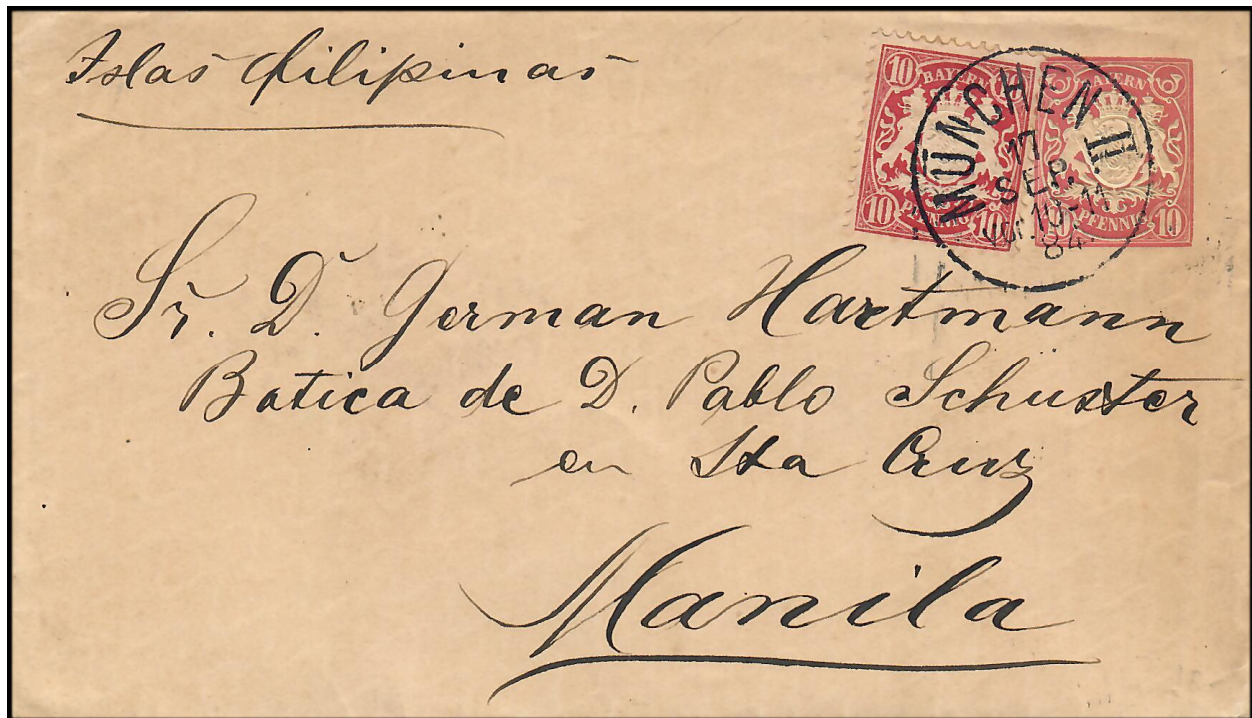 Islas Filipinas
10 BAYERN
10 PFENNIG 10
BAYERN
PFENNIG 10
MÜNCHEN II
17
SEP.
Vor. 10-11
84
Sr. D. German Hartmann
Botica de D. Pablo Schüster
en Sta Cruz
Manila